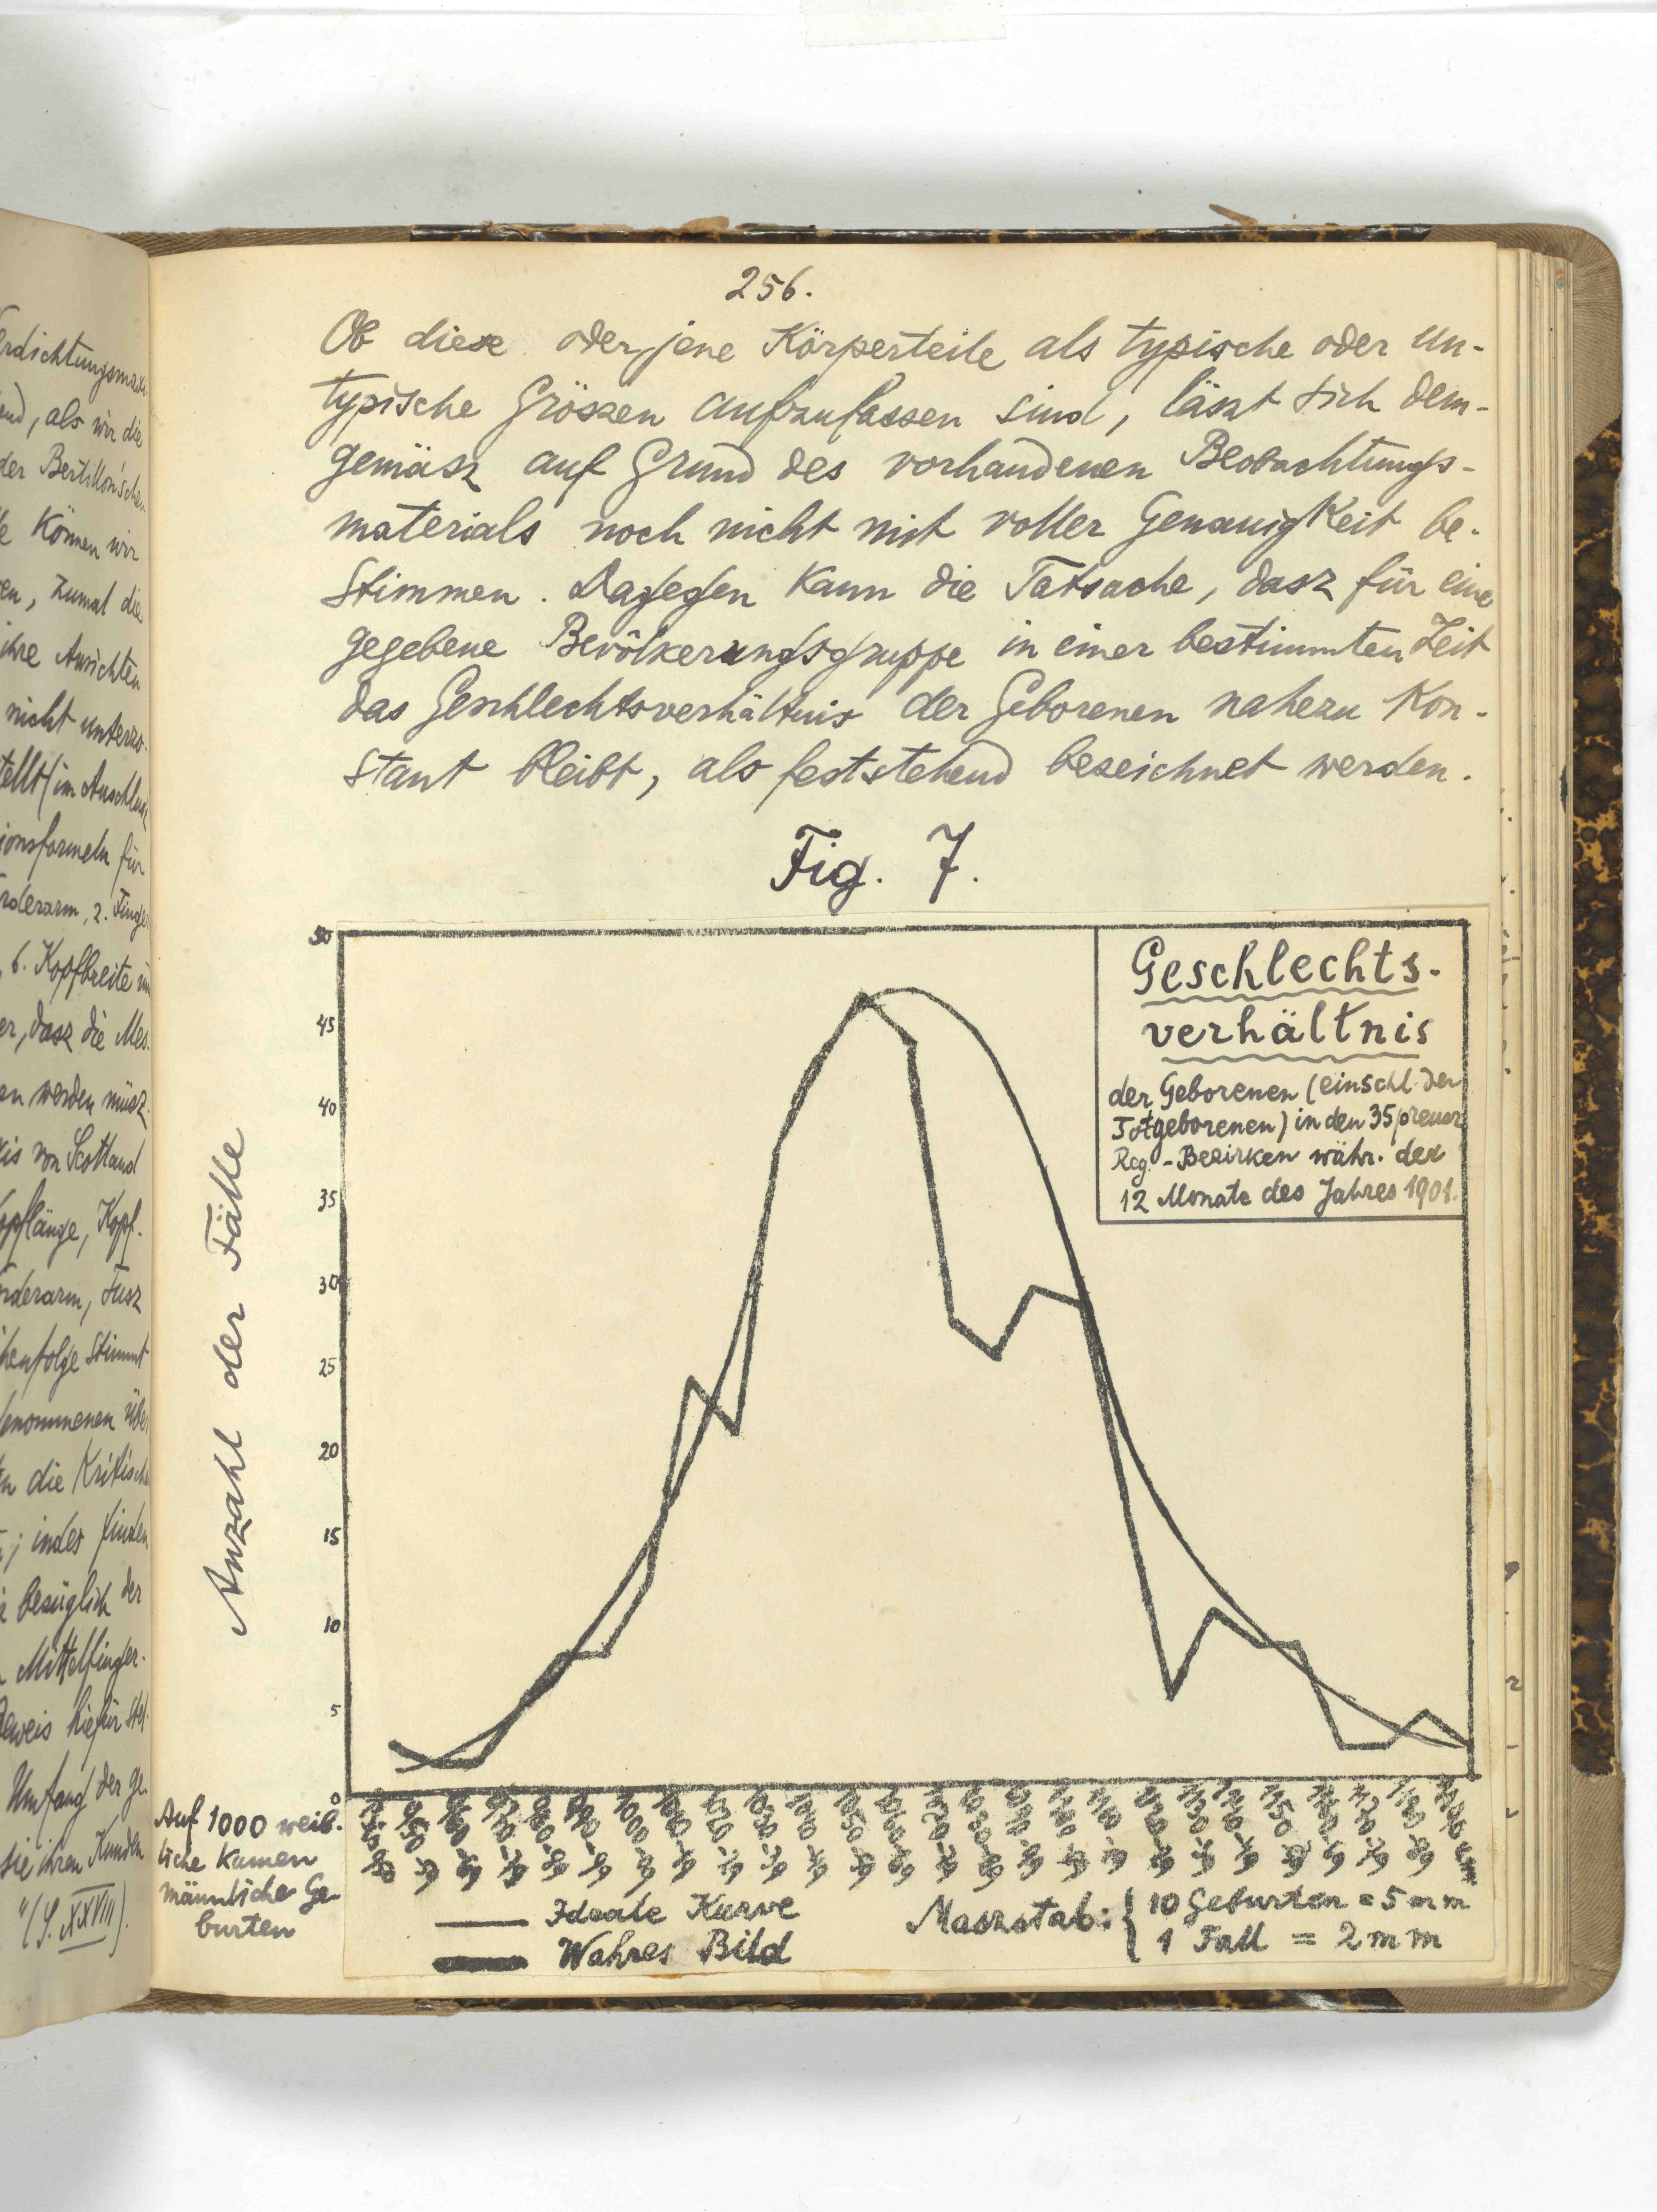 rdichtungsmax
end, als wir die
der Bertillon'schen
e Können wir
en, zumal die
ihre Ansichten
nicht unterzo-
tellt (im Anschlusz
ionsformeln für
rderarm, 2. Finger
6. Kopfbreite
er, dasz die Mes-
en werden müsz-
is von Scottand
opflänge, Kopf-
rderarm, Fusz
ihenfolge stimmt
enommenen Übe
die Kritisch
; indes finden
bezüglich der
Mittelfinger-
beweis hiefür
Umfang der ge-
sie ihren Kunden
"(S. XXVIII).
256.
Ob diese oder jene Körperteile als typische oder un-
typische Grössen aufzufassen sind, läszt sich dem-
gemäsz auf Grund des vorhandenen Beobachtungs-
materials noch nicht mit voller Genauigkeit be-
stimmen. Dagegen kann die Tatsache, dasz für eine
gegebene Bevölkerungsgruppe in einer bestimmten Zeit
das Geschlechtsverhältnis der Geborenen nahezu Kon-
stant bleibt, als feststehend bezeichnet werden.
Fig. 7.
Geschlechts-
verhältnis
der Geborenen (einschl. der
Totgeborenen) in den 35 preusz
Reg.-Bezirken währ. der
12 Monate des Jahres 1901.
Anzahl der Fälle
50
45
40
35
30
25
20
15
10
5
0
Auf 1000 weib-
liche kamen
männliche Ge-
burten
Ideale Kurve
Wahres Bild
Maszstab: { 10 Geburten = 5 mm
1 Fall = 2 mm